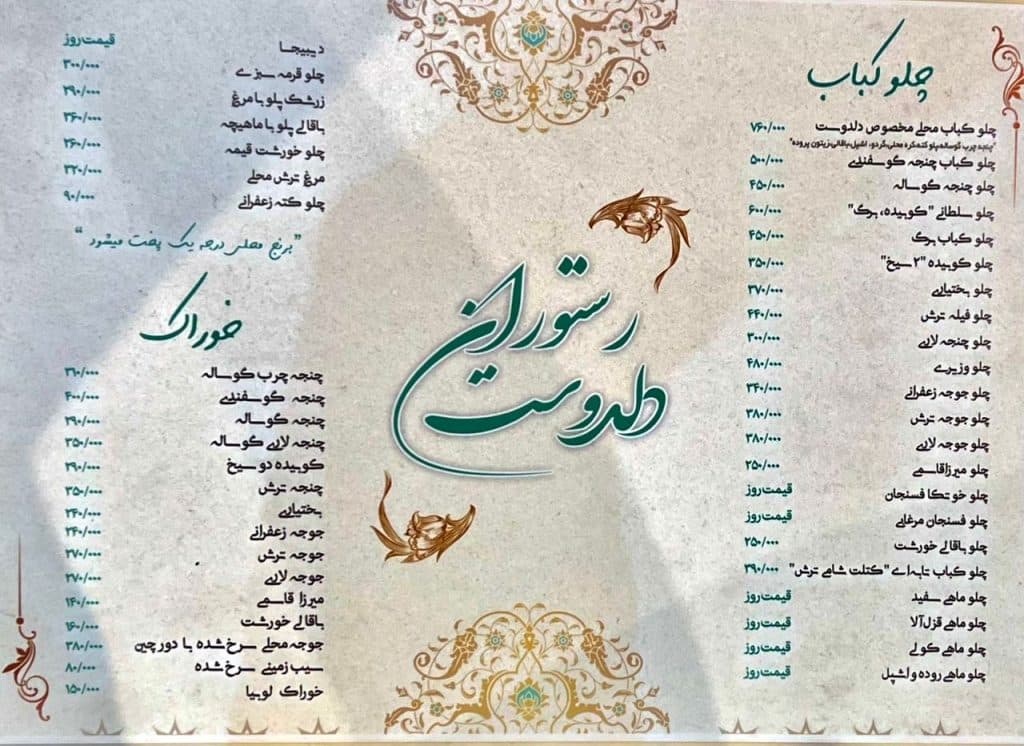 چلو کباب
چلو کباب محلی مخصوص دلدوست ۷۶۰/۰۰۰
"چنجه چرب گوساله،پلو کته،کره محلی،گردو، اشپل،باقالی،زیتون پرورده"
چلو کباب چنجه گوسفندی ۵۰۰/۰۰۰
چلو چنجه گوساله ۴۵۰/۰۰۰
چلو سلطانی "کوبیده، برگ" ۶۰۰/۰۰۰
چلو کباب برگ ۴۵۰/۰۰۰
چلو کوبیده "۲ سیخ" ۳۵۰/۰۰۰
چلو بختیاری ۳۷۰/۰۰۰
چلو فیله ترش ۴۴۰/۰۰۰
چلو چنجه لاری ۳۰۰/۰۰۰
چلو وزیری ۴۸۰/۰۰۰
چلو جوجه زعفرانی ۳۴۰/۰۰۰
چلو جوجه ترش ۳۸۰/۰۰۰
چلو جوجه لاری ۳۸۰/۰۰۰
چلو میرزاقاسمی ۲۵۰/۰۰۰
چلو خوتکا فسنجان قیمت روز
چلو فسنجان مرغابی قیمت روز
چلو باقالی خورشت ۲۵۰/۰۰۰
چلو کباب تابه ای "کتلت شاهی ترش" ۳۹۰/۰۰۰
چلو ماهی سفید قیمت روز
چلو ماهی قزل آلا قیمت روز
چلو ماهی کولی قیمت روز
چلو ماهی روده و اشپل قیمت روز
رستوران
دلدوست
دیبیجا قیمت روز
چلو قرمه سبزی ۳۰۰/۰۰۰
زرشک پلو با مرغ ۲۹۰/۰۰۰
باقالی پلو با ماهیچه ۳۶۰/۰۰۰
چلو خورشت قیمه ۲۶۰/۰۰۰
مرغ ترش محلی ۳۲۰/۰۰۰
چلو کته زعفرانی ۹۰/۰۰۰
"برنج محلی درجه یک پخت میشود"
خوراک
چنجه چرب گوساله ۳۶۰/۰۰۰
چنجه گوسفندی ۴۰۰/۰۰۰
چنجه گوساله ۲۹۰/۰۰۰
چنجه لاری گوساله ۳۵۰/۰۰۰
کوبیده دو سیخ ۲۹۰/۰۰۰
چنجه ترش ۳۵۰/۰۰۰
بختیاری ۲۴۰/۰۰۰
جوجه زعفرانی ۲۴۰/۰۰۰
جوجه ترش ۲۷۰/۰۰۰
جوجه لاری ۲۷۰/۰۰۰
میرزا قاسمی ۱۴۰/۰۰۰
باقالی خورشت ۱۶۰/۰۰۰
جوجه محلی سرخ شده با دورچین ۳۸۰/۰۰۰
سیب زمینی سرخ شده ۸۰/۰۰۰
خوراک لوبیا ۱۵۰/۰۰۰